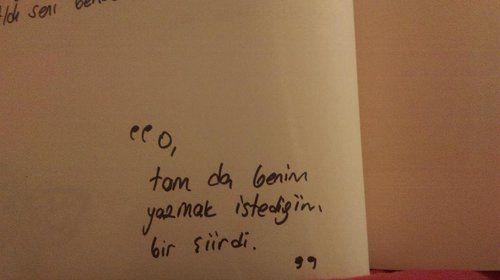 seni
“O,
tam da benim
yazmak istediğim
bir şiirdi.
”